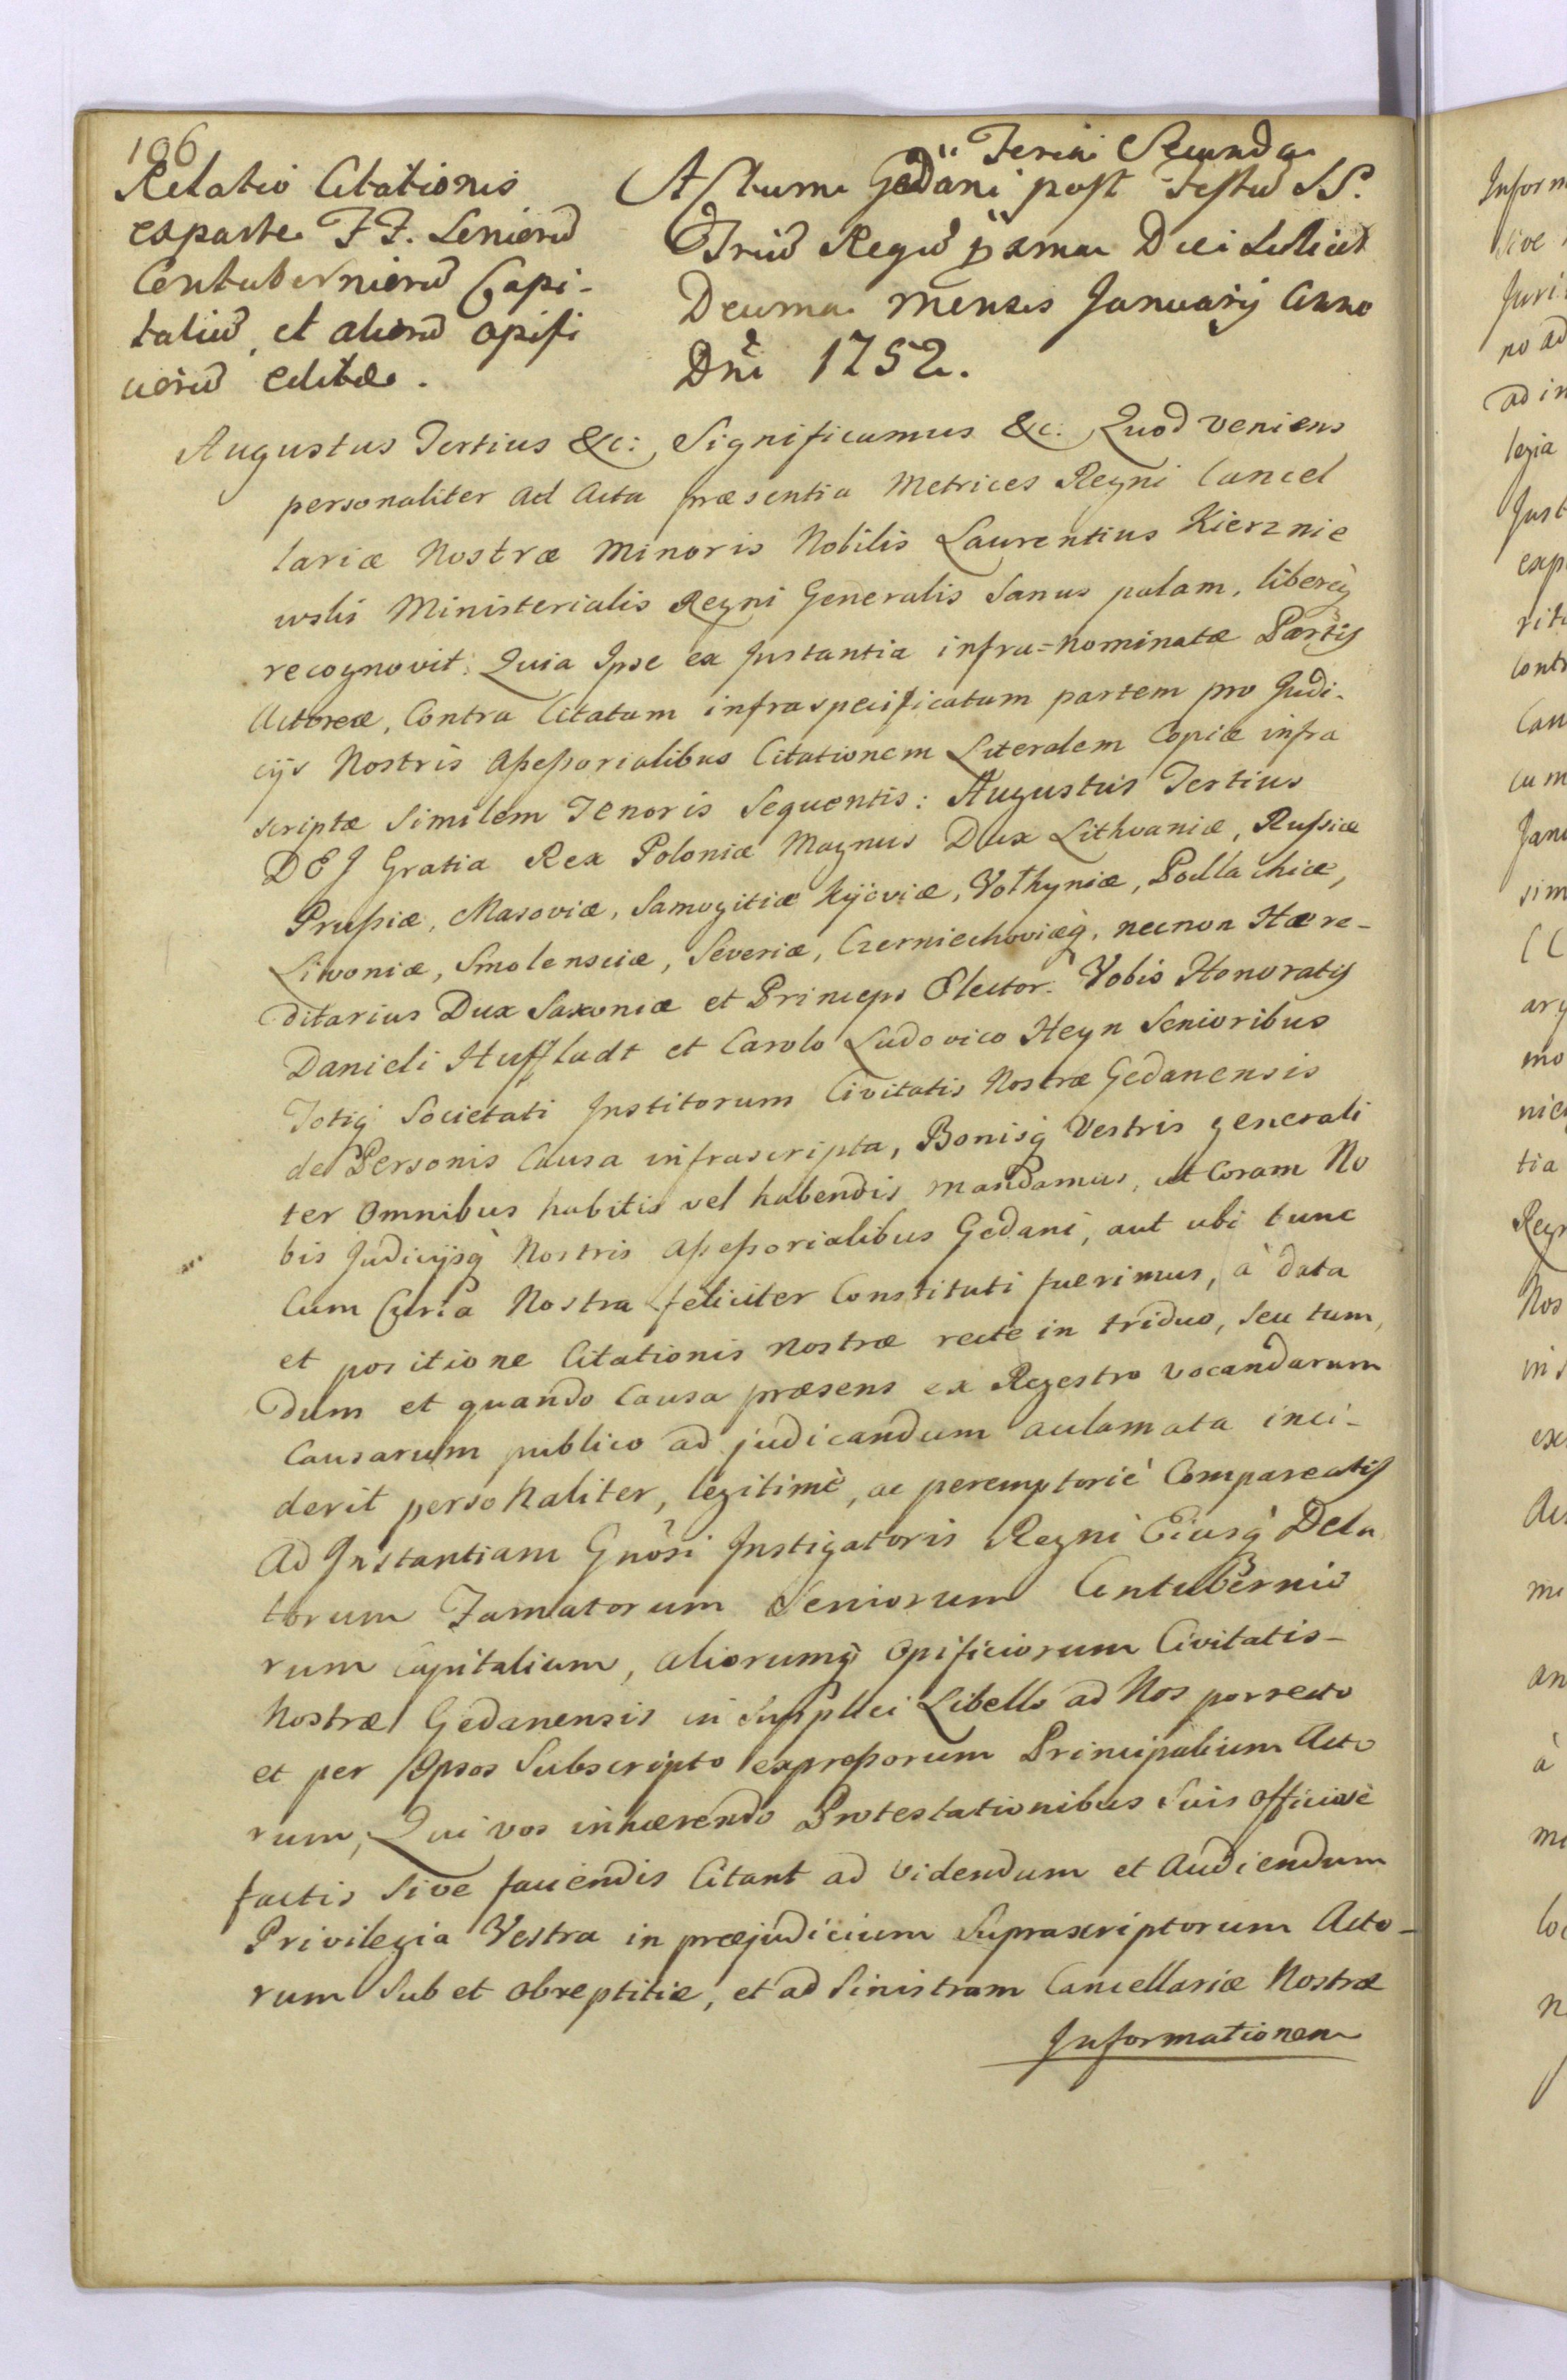 106
Relatio Citationis
ex parte F F. Seniorũ
Contuberniorũ Capi-
taliũ, et aliorũ opifi
ciorũ editæ.
Feria Secunda
Actum Gedani post Festũ SS.
Triũ Regũ pxma Diei scilicet
Decima Mensis January Anno
Dni 1752.
Augustus Tertius &c: Significamus &c: Quod veniens
personaliter ad Acta præsentia Metrices Regni Cancel
lariæ Nostræ Minoris Nobilis Laurentius Kierznie
wski Ministerialis Regni Generalis Sanus palam, liberèq
recognovit: Quia Ipse ex Instantia infra=nominatæ Partis
Actoreæ, Contra Citatam infraspecificatam partem pro Judi-
cijs Nostris Assessorialibus Citationem Literalem Copiæ infra
scriptæ Similem Tenoris Sequentis: Augustus Tertius
DEJ Gratia Rex Poloniæ Magnus Dux Lithvaniæ, Russiæ
Prussiæ, Masoviæ, Samogitiæ Kijoviæ, Volhyniæ, Podlachiæ,
Livoniæ, Smolensciæ, Severiæ, Czerniechoviæq, necnon Hære-
ditarius Dux Saxoniæ et Princeps Elector. Vobis Honoratis
Danieli Huffladt et Carolo Ludovico Heyn Senioribus
Totiq Societati Institorum Civitatis Nostræ Gedanensis
de Personis Causa infrascripta, Bonisq Vestris generali
ter Omnibus habitis vel habendis mandamus, ut Coram No
bis Judicijsq Nostris Assessorialibus Gedani, aut ubi tunc
Cum Curia Nostra feliciter Constituti fuerimus, à data
et positione Citationis nostræ recte in triduo, seu tum,
dum et quando Causa præsens ex Regestro vocandarum
Causarum publico ad judicandum acclamata inci-
derit personaliter, legitimè, ac peremptoriè Compareatis
Ad Instantiam Gnosi Instigatoris Regni Eiusq Dela
torum Famatorum Seniorum Contubernio
rum Capitalium, aliorumq Opificiorum Civitatis-
Nostræ Gedanensis in Supplici Libello ad Nos porrecto
et per Ipsos Subscripto expressorum Principalium Acto
rum, Qui vos inhærendo Protestationibus Suis officiosè
factis Sive faciendis Citant ad videndum et Audiendum
Privilegia Vestra in præjudicium Suprascriptorum Acto-
rum Sub et obreptitiæ, et ad Sinistram Cancellariæ Nostræ
Informationem